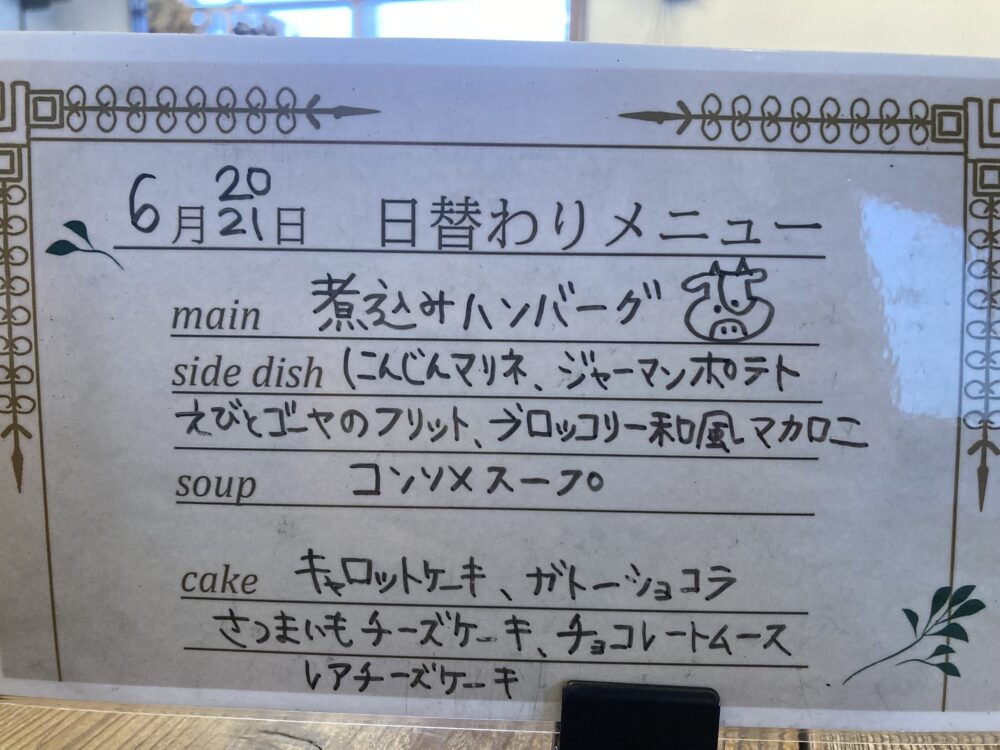 6月20 21日 日替わりメニュー
main 煮込みハンバーグ
side dish にんじんマリネ、ジャーマンポテト
えびとゴーヤのフリット、ブロッコリー和風マカロニ
soup コンソメスープ
cake キャロットケーキ、ガトーショコラ
さつまいもチーズケーキ、チョコレートムース
レアチーズケーキ